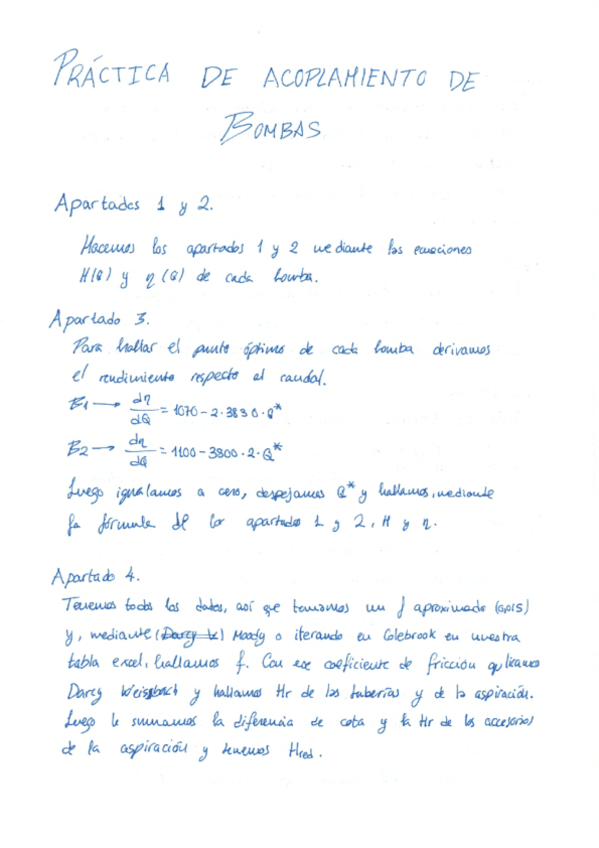 PRÁCTICA DE ACOPLAMIENTO DE
BOMBAS
Apartados 1 y 2.
Hacemos los apartados 1 y 2 mediante las ecuaciones
H(Q) y η(Q) de cada bomba.
Apartado 3.
Para hallar el punto óptimo de cada bomba derivamos
el rendimiento respecto al caudal.
B1 → dη/dQ = 1070 - 2·3830·Q*
B2 → dη/dQ = 1100 - 3800·2·Q*
Luego igualamos a cero, despejamos Q* y hallamos, mediante
la fórmula de los apartados 1 y 2, H y η.
Apartado 4.
Tenemos todos los datos, así que tomamos un f aproximado (0,015)
y, mediante (Darcy W) Moody o iterando en Colebrook en nuestra
tabla excel, hallamos f. Con ese coeficiente de fricción aplicamos
Darcy Weissbach y hallamos Hr de las tuberías y de la aspiración.
Luego le sumamos la diferencia de cota y la Hr de los accesorios
de la aspiración y tenemos Hred.